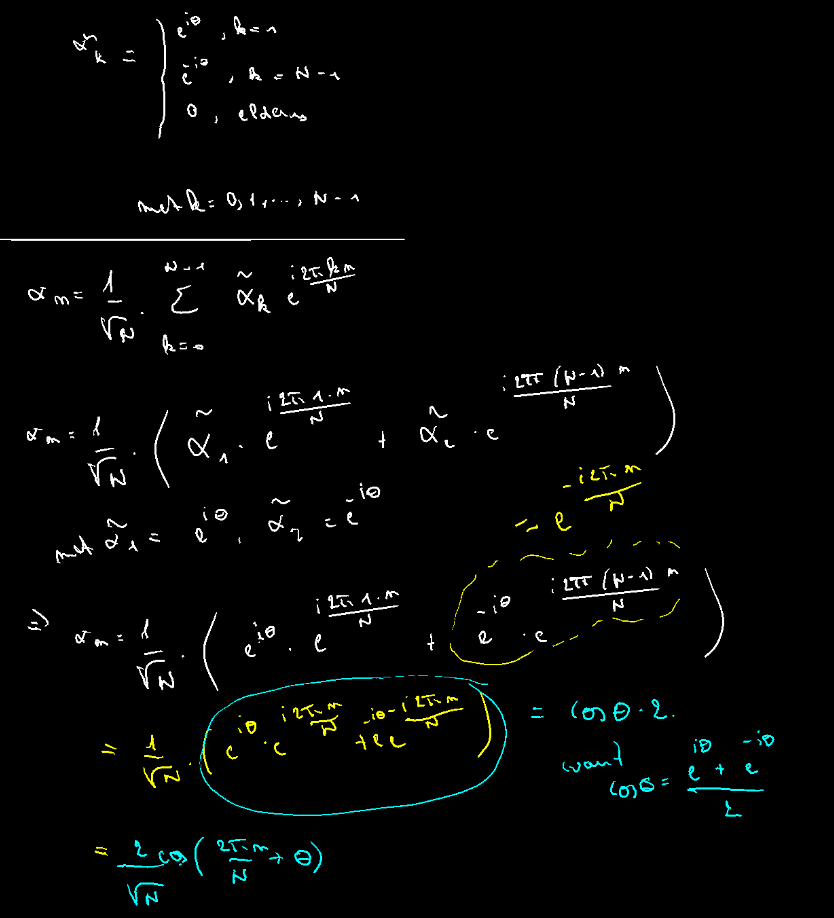 α̃_k = { e^{iθ}, k=1
e^{-iθ}, k = N-1
0, elders
met k = 0,1,..., N-1
α_m = 1/√N · Σ_{k=0}^{N-1} α̃_k e^{i 2π k m / N}
α_m = 1/√N · ( α̃_1 · e^{i 2π 1·m / N} + α̃_2 · e^{i 2π (N-1) m / N} )
met α̃_1 = e^{iθ}, α̃_2 = e^{-iθ}
= e^{-i 2π m / N}
⇒ α_m = 1/√N · ( e^{iθ} · e^{i 2π 1·m / N} + e^{-iθ} · e^{i 2π (N-1) m / N} )
= 1/√N · ( e^{iθ} · e^{i 2π m / N} + e^{-iθ} e^{-i 2π m / N} ) = cos θ · 2.
want
cos θ = (e^{iθ} + e^{-iθ}) / 2
= 2/√N cos ( 2π m / N + θ )